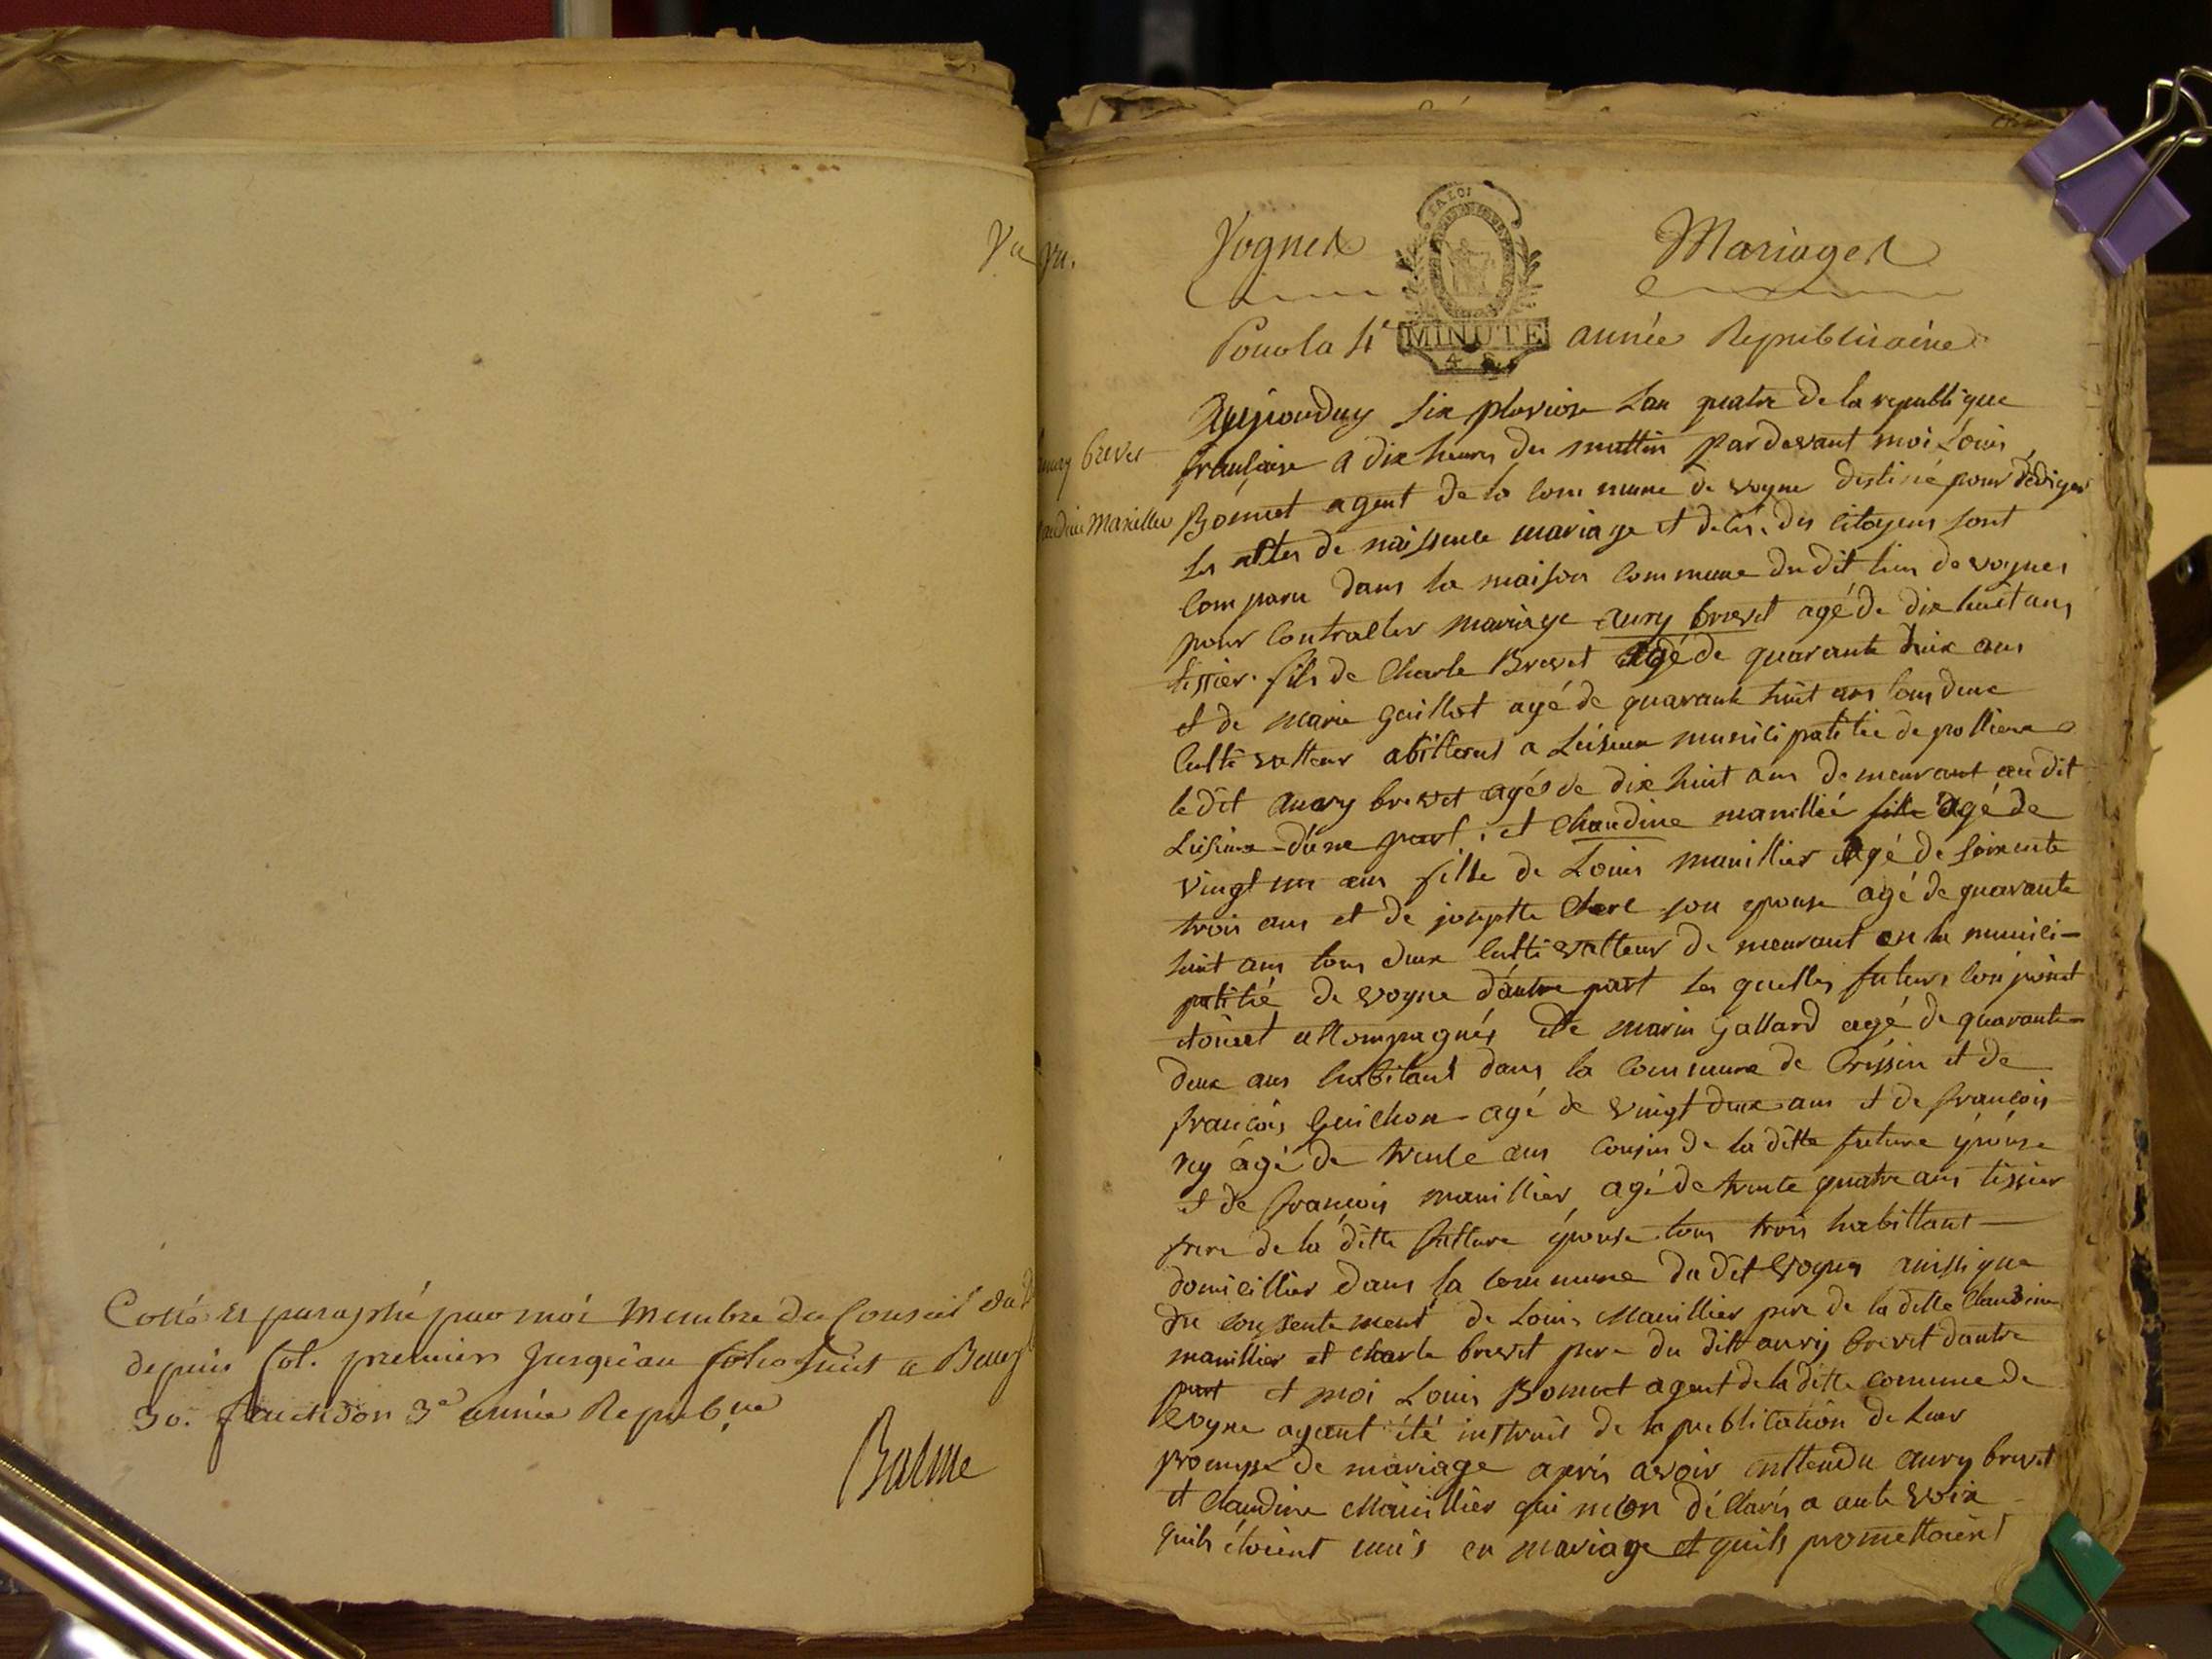 Cotté et paraphé par moi Membre du Conseil du
depuis fol. premier jusqu'au folio huit a Belley
30. fructidor 3e année Republique
Balme
Vu
Vognes Mariages
LA LOI
MINUTE
Pour la 4e année Republicaine
aury brevet
Claudine Manillier
Aujourduy six pluviose Lan quatre de la republique
francaise a dix heures du mattin par devant moi Louis
Bonnet agent de la commune de vogne destiné pour rediger
les actes de naissance mariage et deces des citoyens sont
comparu dans la maison commune du dit lieu de vognes
pour contracter mariage aury brevet agé de dix huit ans
tissier fils de Charle Brevet agé de quarante huit ans
et de marie Guillot agé de quarante huit ans tous deux
cultivatteur abittant a Leisieux municipalitée de pollieu
le dit aury brevet agés de dix huit ans demeurant au dit
Leisieux d'une part, et Claudine manilliée fille agé de
vingt un ans fille de Louis manillier agé de soixente
trois ans et de josepte Clerc son epouse agé de quarante
huit ans tous deux cultivatteur demeurant en la munici-
palitié de vogne d'autre part les quelles futurs conjoint
etoient accompagnés de marin Gallard agé de quarante
deux ans habitant dans la commune de Cressin et de
francois Guichon agé de vingt deux ans et de francois
rey âgé de trente ans cousin de la ditte future épouse
et de francois manillier agé de trente quatre ans tissier
frere de la ditte future épouse tous trois habittant
domicillier dans la commune du dit vognes ainssi que
du consentement de Louis Manillier pere de la ditte Claudine
manillier et charle brevet pere du ditt aury brevet dautre
part et moi Louis Bonnet agent de la ditte comune de
vogne ayant été instruit de la publication de leur
promesse de mariage aprés avoir enttendu aury brevet
et Claudine Manillier qui mon déclarés a aute voix
quils étoient unis en mariage et quils promettoient